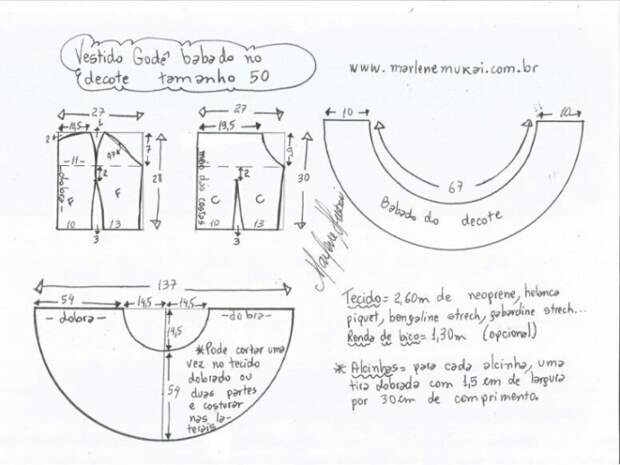 Vestido Godê babado no
decote tamanho 50
www.marlenemukai.com.br
27
19,5
2
11
7
2
28
dobra
F
F
10
13
3
27
19,5
meio das costas
2
30
C
C
10
13
3
10
10
67
Babado do decote
Marlene Mukai
137
54
14,5
14,5
- dobra -
- dobra -
14,5
54
* Pode cortar uma
vez no tecido
dobrado ou
duas partes
e costurar
nas la-
terais
Tecido = 2,60m de neoprene, helanca
piquet, bengaline strech, gabardine strech...
Renda de bico = 1,30m (opcional)
* Alcinhas = para cada alcinha, uma
tira dobrada com 1,5 cm de largura
por 30cm de comprimento.